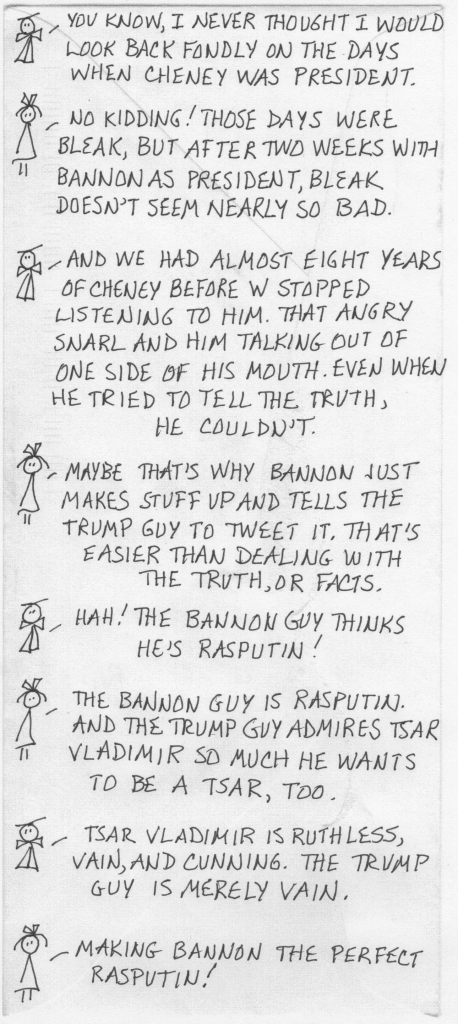 YOU KNOW, I NEVER THOUGHT I WOULD
LOOK BACK FONDLY ON THE DAYS
WHEN CHENEY WAS PRESIDENT.
NO KIDDING! THOSE DAYS WERE
BLEAK, BUT AFTER TWO WEEKS WITH
BANNON AS PRESIDENT, BLEAK
DOESN'T SEEM NEARLY SO BAD.
AND WE HAD ALMOST EIGHT YEARS
OF CHENEY BEFORE W STOPPED
LISTENING TO HIM. THAT ANGRY
SNARL AND HIM TALKING OUT OF
ONE SIDE OF HIS MOUTH. EVEN WHEN
HE TRIED TO TELL THE TRUTH,
HE COULDN'T.
MAYBE THAT'S WHY BANNON JUST
MAKES STUFF UP AND TELLS THE
TRUMP GUY TO TWEET IT. THAT'S
EASIER THAN DEALING WITH
THE TRUTH, OR FACTS.
HAH! THE BANNON GUY THINKS
HE'S RASPUTIN!
THE BANNON GUY IS RASPUTIN.
AND THE TRUMP GUY ADMIRES TSAR
VLADIMIR SO MUCH HE WANTS
TO BE A TSAR, TOO.
TSAR VLADIMIR IS RUTHLESS,
VAIN, AND CUNNING. THE TRUMP
GUY IS MERELY VAIN.
MAKING BANNON THE PERFECT
RASPUTIN!